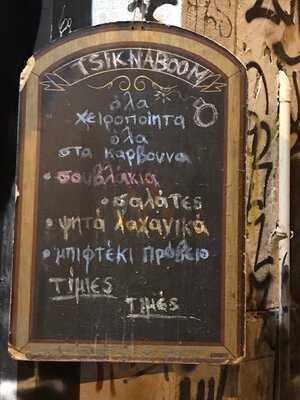 TSIKNABOOM
όλα
χειροποίητα
όλα
στα κάρβουνα
• σουβλάκια
• σαλάτες
• ψητά λαχανικά
• μπιφτέκι πρόβειο
τίμιες
τιμές